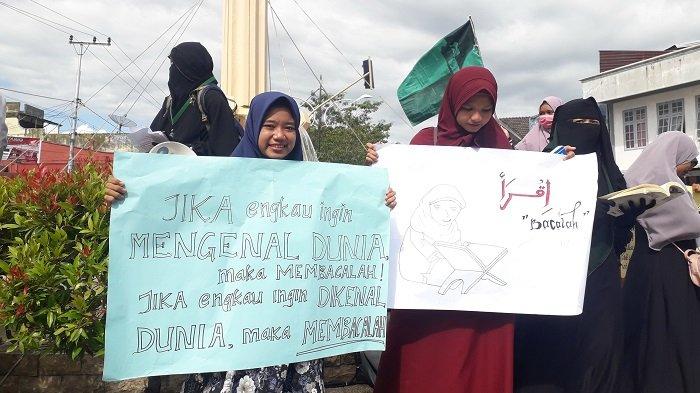 JIKA engkau ingin
MENGENAL DUNIA,
maka MEMBACALAH!
JIKA engkau ingin DIKENAL
DUNIA, maka MEMBACALAH
اقرأ
"Bacalah"